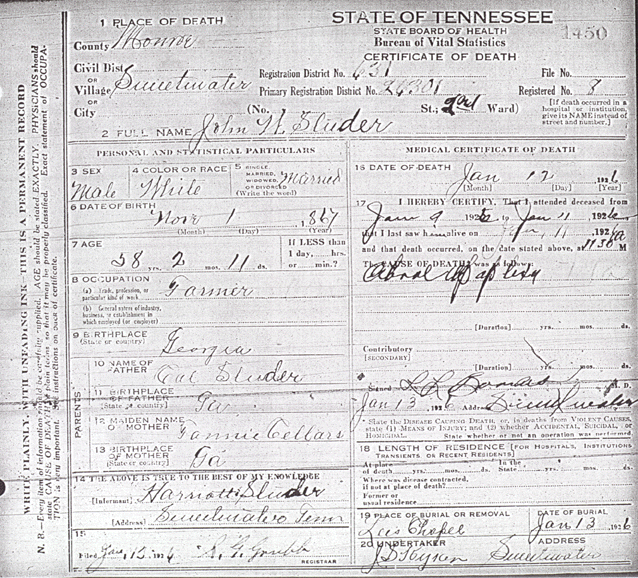 1 PLACE OF DEATH
County Monroe
Civil Dist.
OR
Village Sweetwater
OR
City
STATE OF TENNESSEE
STATE BOARD OF HEALTH
Bureau of Vital Statistics
CERTIFICATE OF DEATH
1450
Registration District No. 631 File No.
Primary Registration District No. Registered No. 8
(No. St.; 2nd Ward)
[If death occurred in a hospital or institution, give its NAME instead of street and number.]
2 FULL NAME John W. Sluder
PERSONAL AND STATISTICAL PARTICULARS
3 SEX Male
4 COLOR OR RACE White
5 SINGLE, MARRIED, WIDOWED, OR DIVORCED (Write the word) Married
6 DATE OF BIRTH Nov 1 1867
(Month) (Day) (Year)
7 AGE
58 yrs. 2 mos. 11 ds.
If LESS than 1 day, hrs. or min.?
8 OCCUPATION
(a) Trade, profession, or particular kind of work Farmer
(b) General nature of industry, business, or establishment in which employed (or employer)
9 BIRTHPLACE
(State or country) Georgia
PARENTS
10 NAME OF FATHER Cal Sluder
11 BIRTHPLACE OF FATHER
(State or country) Ga
12 MAIDEN NAME OF MOTHER Fannie Cellars
13 BIRTHPLACE OF MOTHER
(State or country) Ga
14 THE ABOVE IS TRUE TO THE BEST OF MY KNOWLEDGE
(Informant) Harriett Sluder
(Address) Sweetwater Tenn
15
Filed Jan 13, 1926 Grubb
REGISTRAR
MEDICAL CERTIFICATE OF DEATH
16 DATE OF DEATH Jan 12 1926
(Month) (Day) (Year)
17 I HEREBY CERTIFY, That I attended deceased from
Jan 9 1926 to Jan 11 1926
that I last saw h alive on 11 1926
and that death occurred, on the date stated above, at 11:30 a M
The CAUSE OF DEATH was as follows:
(Duration) yrs. mos. ds.
Contributory
(SECONDARY)
(Duration) yrs. mos. ds.
Signed M. D.
Jan 13, 1926 Address Sweetwater
State the DISEASE CAUSING DEATH, or, in deaths from VIOLENT CAUSES, state (1) MEANS OF INJURY; and (2) whether ACCIDENTAL, SUICIDAL, or HOMICIDAL. State whether or not an operation was performed
18 LENGTH OF RESIDENCE (FOR HOSPITALS, INSTITUTIONS, TRANSIENTS OR RECENT RESIDENTS)
At place of death yrs. mos. ds. In the State yrs. mos. ds.
Where was disease contracted, if not at place of death?
Former or usual residence
19 PLACE OF BURIAL OR REMOVAL Lees Chapel
DATE OF BURIAL Jan 13 1926
20 UNDERTAKER
ADDRESS Sweetwater
WRITE PLAINLY, WITH UNFADING INK—THIS IS A PERMANENT RECORD
N. B.—Every item of information should be carefully supplied. AGE should be stated EXACTLY. PHYSICIANS should state CAUSE OF DEATH in plain terms so that it may be properly classified. Exact statement of OCCUPATION is very important. See instructions on back of certificate.